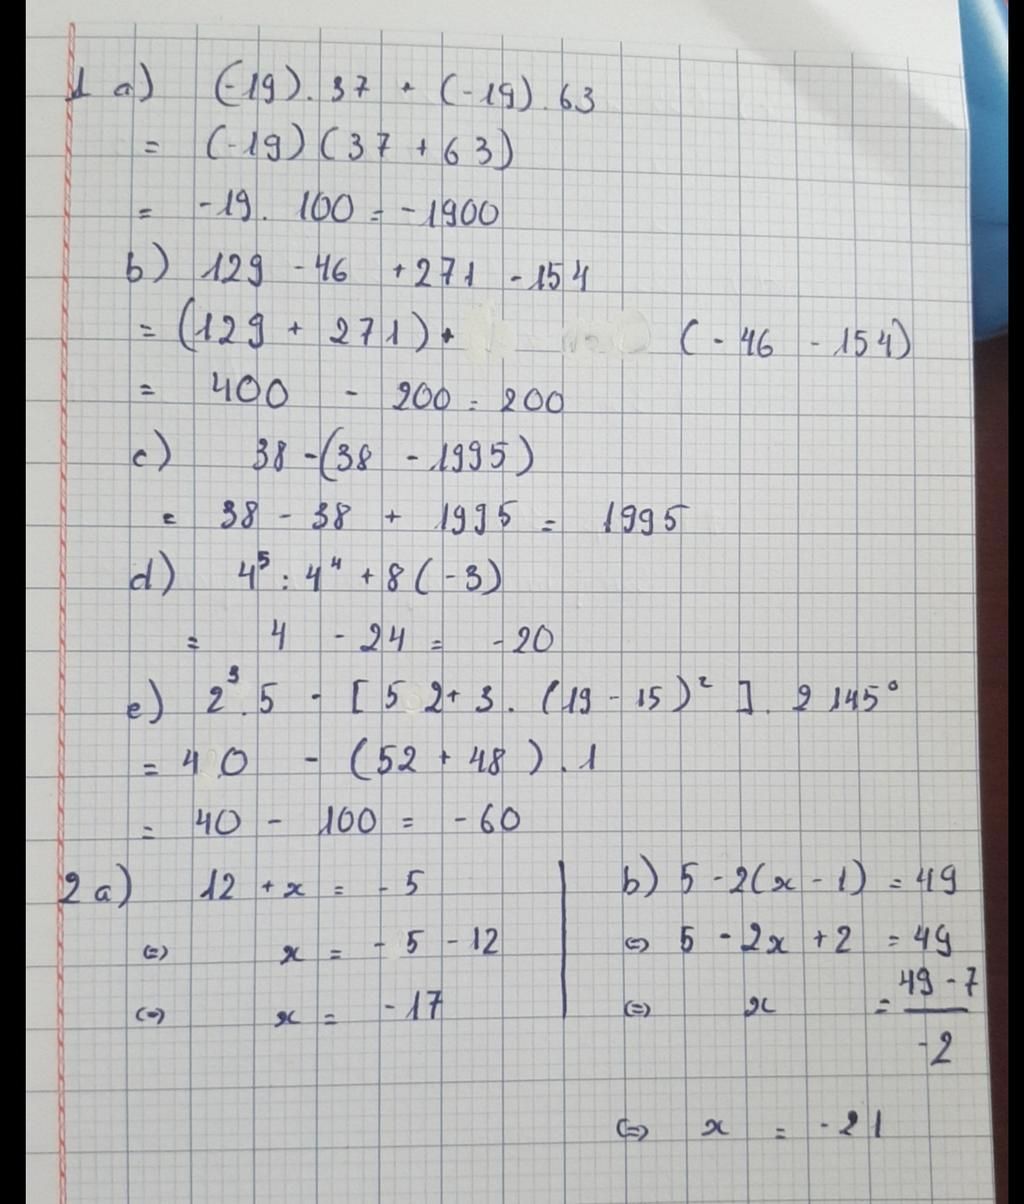 1 a) (-19). 37 + (-19). 63
= (-19) (37 + 63)
= -19. 100 = -1900
b) 129 - 46 + 271 - 154
= (129 + 271) + (-46 - 154)
= 400 - 200 = 200
c) 38 - (38 - 1995)
= 38 - 38 + 1995 = 1995
d) 4⁵ : 4⁴ + 8 (-3)
= 4 - 24 = -20
e) 2³. 5 - [52 + 3. (19 - 15)²]. 2145⁰
= 40 - (52 + 48). 1
= 40 - 100 = -60
2 a) 12 + x = -5
⇔ x = -5 - 12
⇔ x = -17
b) 5 - 2(x - 1) = 49
⇔ 5 - 2x + 2 = 49
⇔ x = 49 - 7
-2
⇔ x = -21